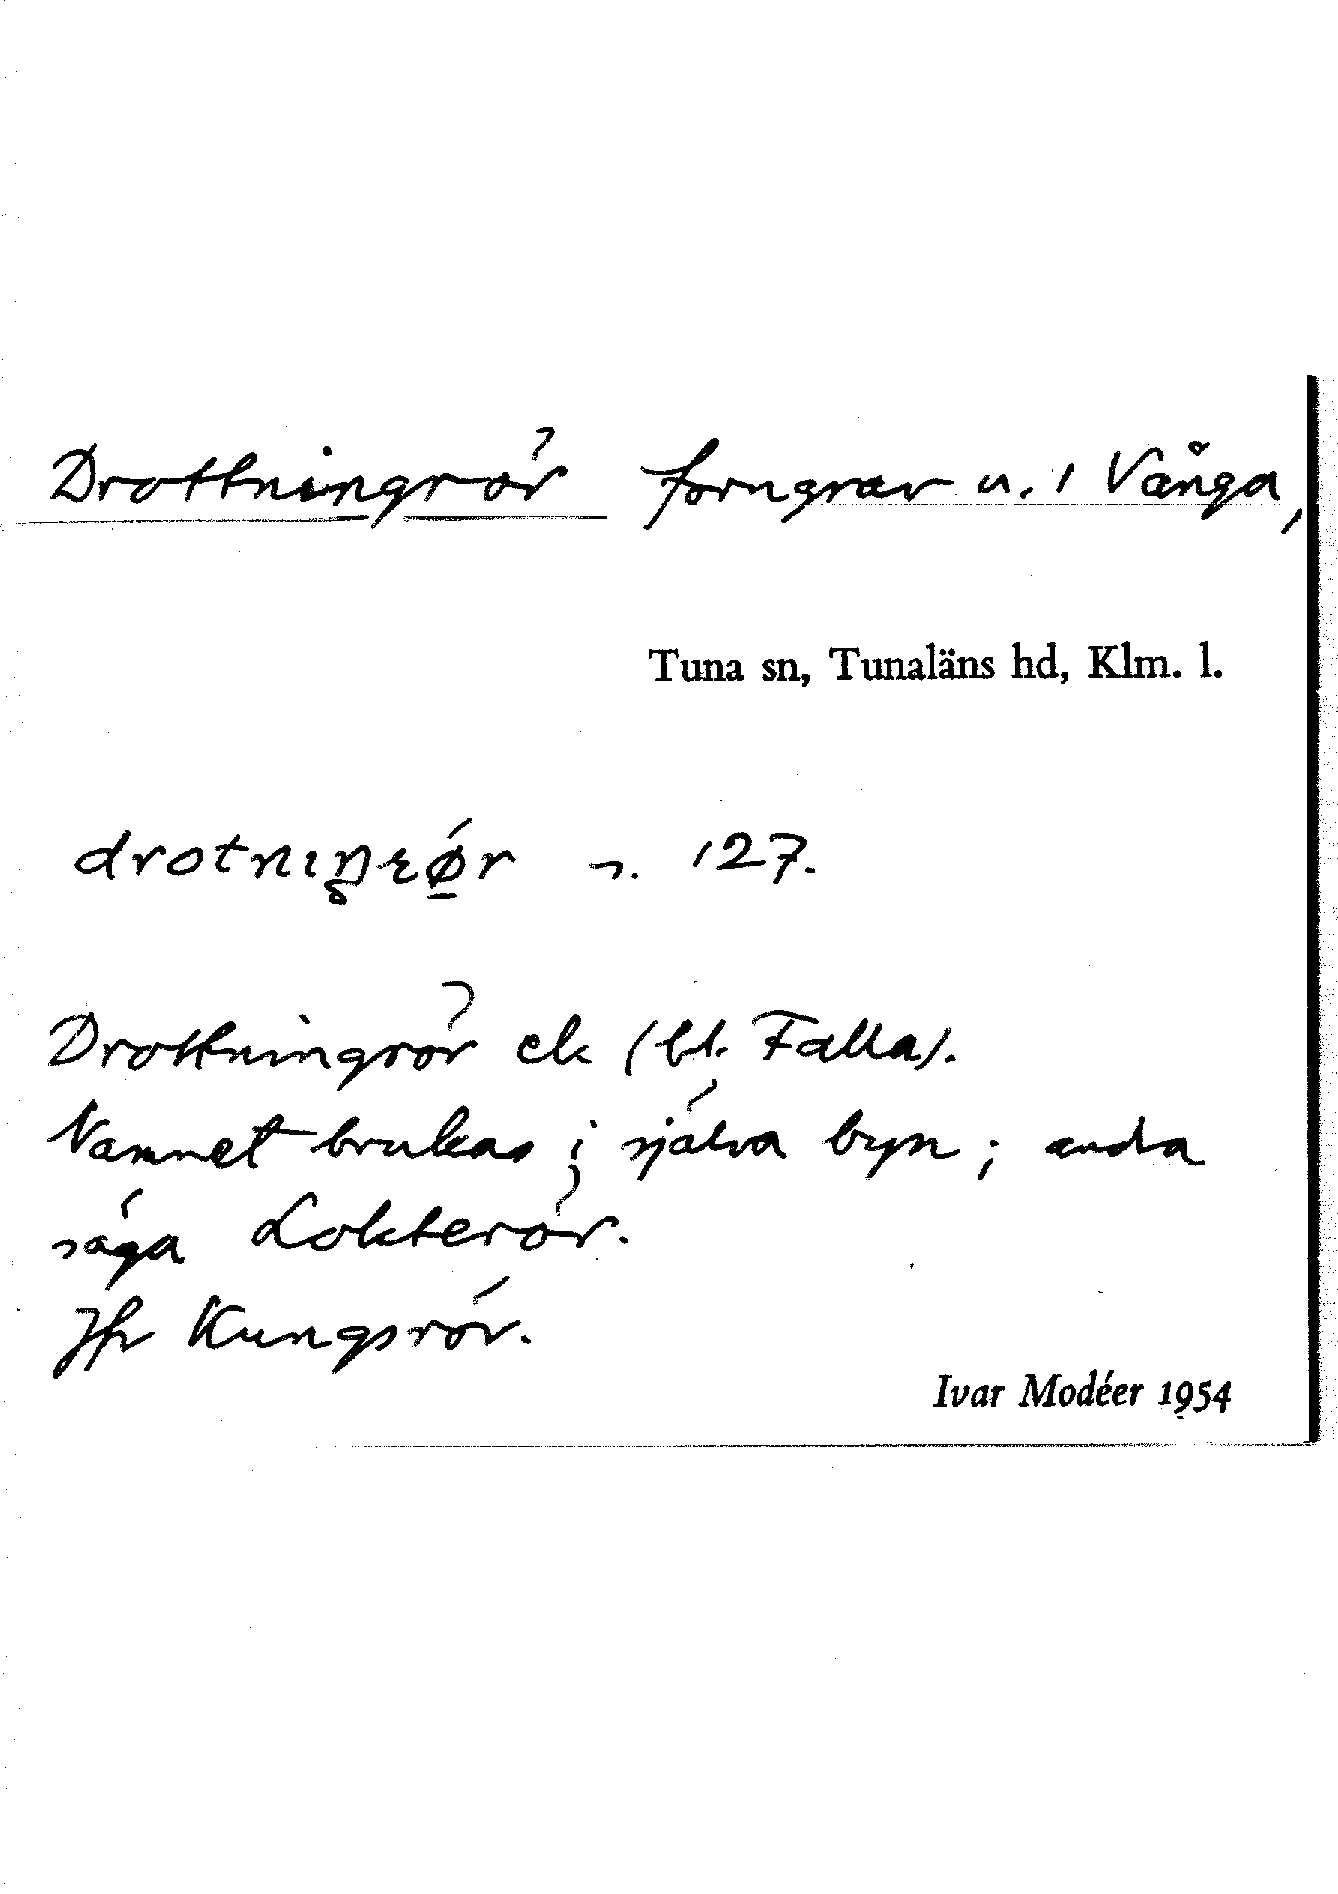 Drottningrör forngrav u. 1 Vånga,
Tuna sn, Tunaläns hd, Klm. l.
n. 127.
Drottningrör ek (bl. Falla).
Namnet brukas i själva byn; andra
säga Lokterör.
Jfr Kungsrör.
Ivar Modéer 1954